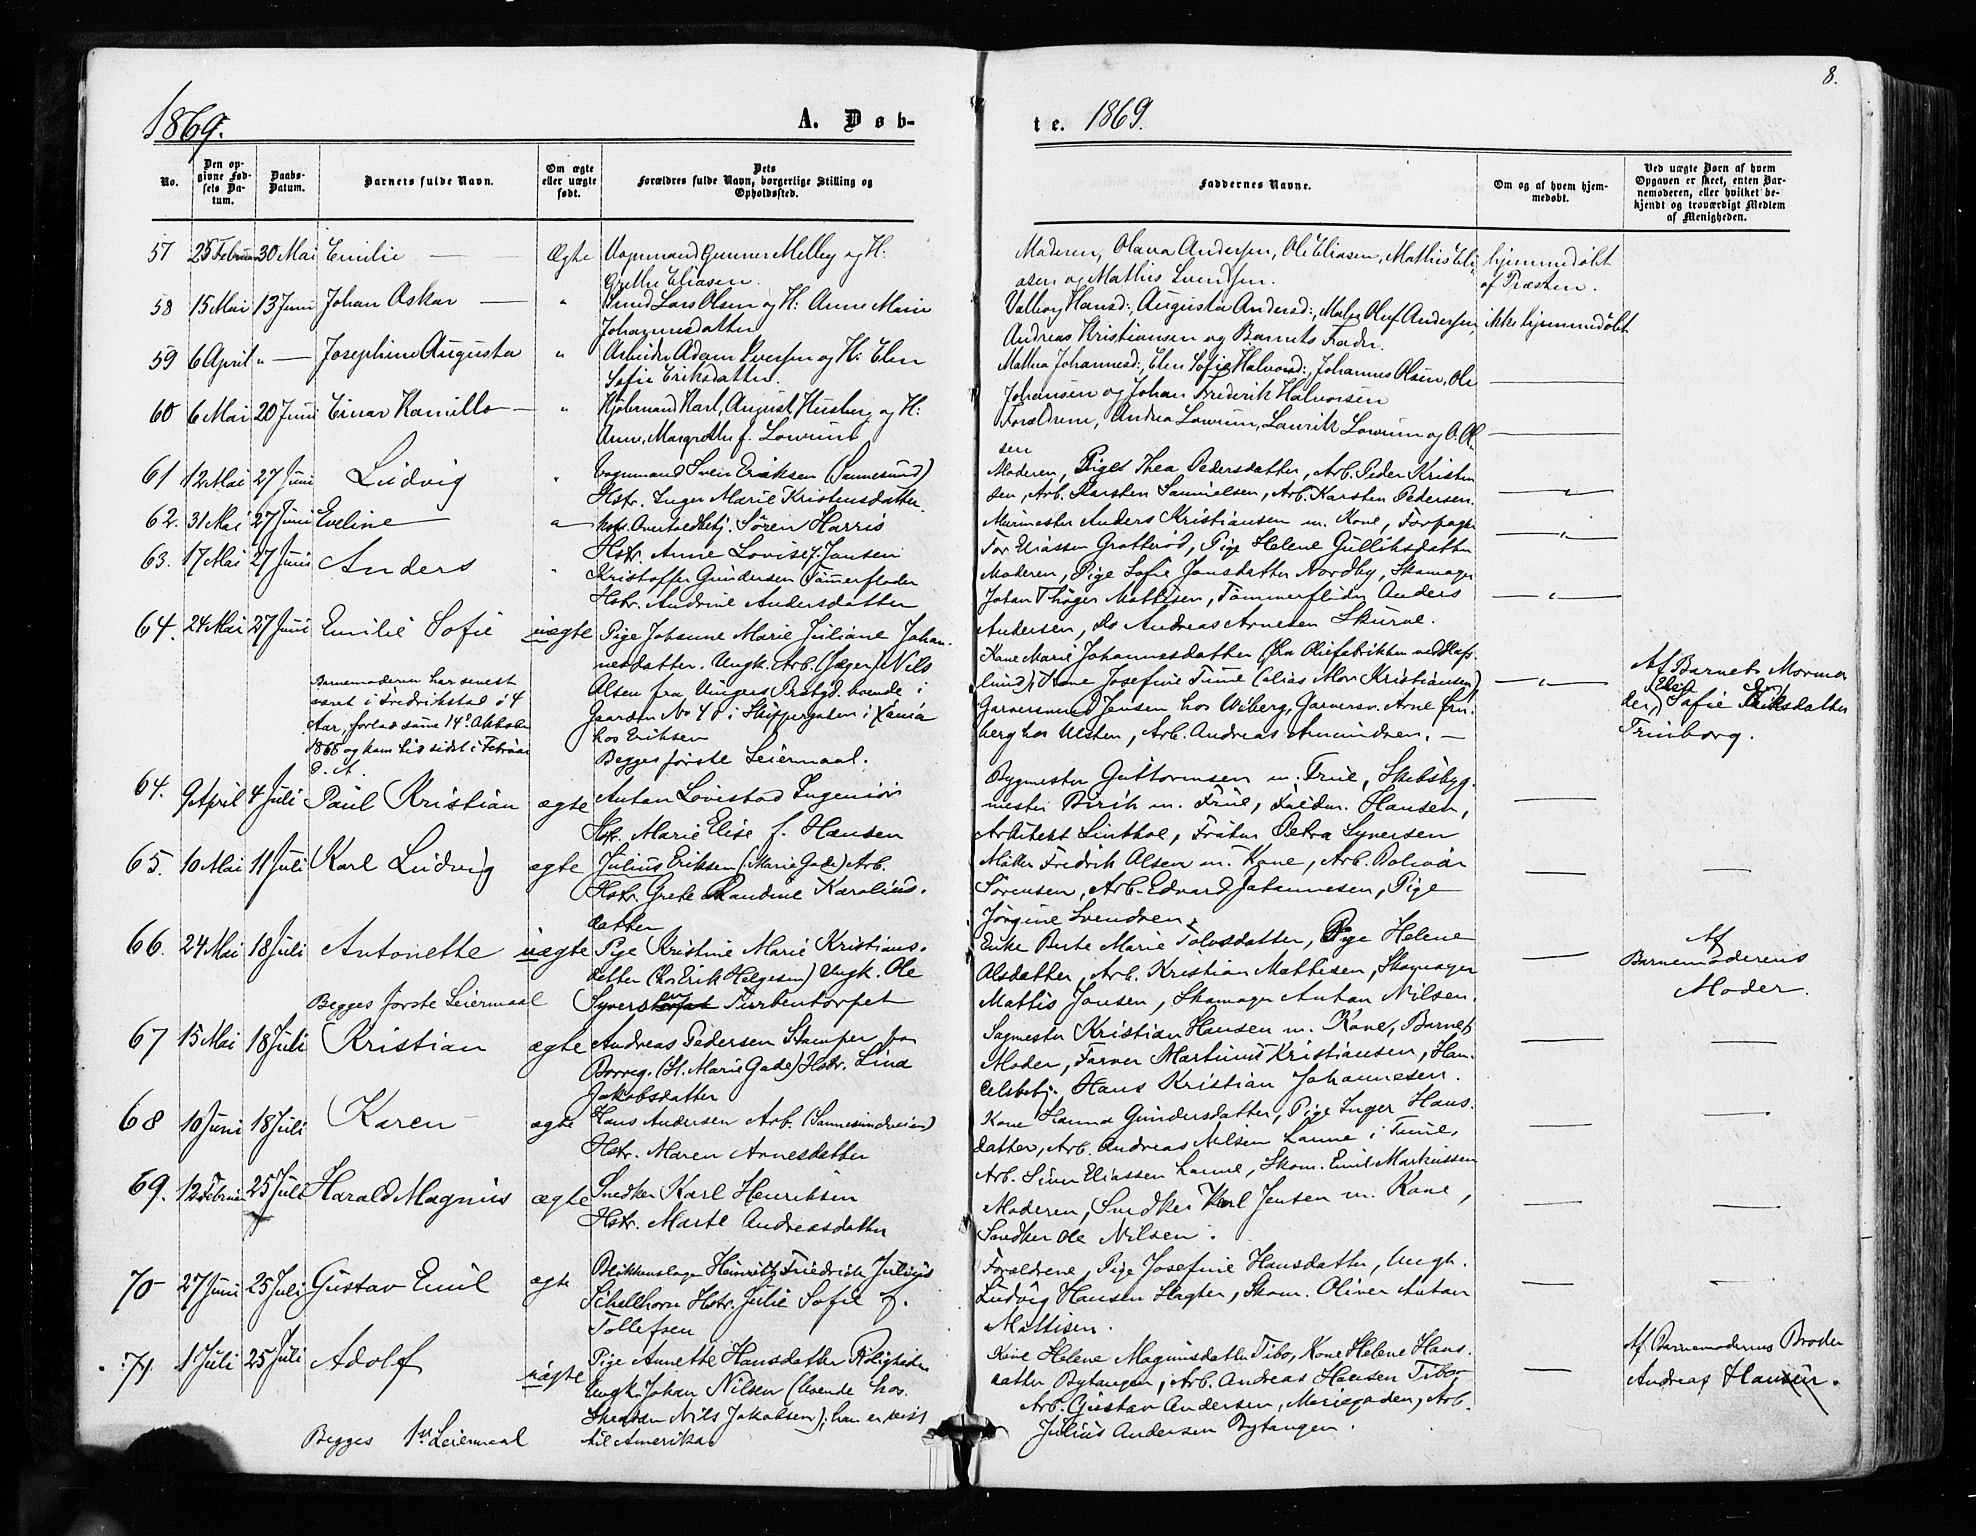 8.
1869.
A. Døb-
te. 1869.
No.
Den op-
givne Fød-
sels Da-
tum.
Daabs-
Datum.
Barnets fulde Navn.
Om ægte
eller uægte
født.
Dets
Forældres fulde Navn, borgerlige Stilling og
Opholdssted.
Faddernes Navne.
Om og af hvem hjem-
medøbt.
Ved uægte Børn af hvem
Opgaven er skeet, enten Bar-
nemoderen, eller hvilket be-
kjendt og troværdigt Medlem
af Menigheden.
57 25 Februar 30 Mai Emilie Ægte Vognmand Gunner Melby og H:
Grethe Eliasen.
Moderen, Olava Andersen, Ole Eliasen, Mathis Eli-
asen og Mathis Svendsen.
hjemmedøbt
af Præsten.
58 15 Mai 13 Juni Johan Oskar — " Smed Lars Olsen og H: Anne Marie
Johannesdatter
Valborg Hansd:, Augusta Andersd:, Maler Oluf Andersen,
Andreas Kristiansen og Barnets Fader.
ikke hjemmedøbt
59 6 April " — Josephine Augusta " Arbeider Adam Iversen og H: Elen
Sofie Eriksdatter.
Mathea Johannesd:, Elen Sofie Halvorsd:, Johannes Olsen, Ole
Johansen og Johan Frederik Halvorsen
60 6 Mai 20 Juni Einar Kamillo — " Kjøbmand Karl August Husberg og H:
Anne Margrethe f. Lowum
Forældrene, Andrea Lowum, Laurik Lowum og O. Ol-
sen
61 12 Mai 27 Juni Ludvig " Vognmand Sven Eriksen (Sannesund)
Hstr. Inger Marie Kristensdatter.
Moderen, Pige Thea Pedersdatter, Arb. Peder Kristen
sen, Arb. Karsten Samuelsen, Arb. Karsten Pedersen.
62. 31 Mai 27 Juni Eveline " Søren Harris
Hstr. Anne Lovise f. Jansen
Murmester Anders Kristiansen m. Kone,
Tor Eliassen Grotterød, Pige Helene Gulliksdatter
63. 17 Mai 27 Juni Anders " Kristoffer Gundersen Tømmerfløder
Hstr. Andrine Andersdatter
Moderen, Pige Sofie Jansdatter Nordby, Skomager
Johan Thøger Mattisen, Tømmerfløder Anders
Andersen, do Andreas Arnesen Skurve.
64. 24 Mai 27 Juni Emilie Sofie uægte Pige Johanne Marie Juliane Johan-
nesdatter. Ungk. Arb. (Jæger) Nils
Olsen fra Ringers Præstgd. boende i
Gaarden No 40 i Skippergaten i Xania
hos Eriksen
Begges første Leiermaal.
Barnemoderen har senest
været i Fredrikstad i 4
Aar, forlod samme 14d Oktober
1868 og kom hid sidst i Februar
d. A.
Kone Marie Johannesdatter fra Oliefabrikken ved Hafs-
lund, Kone Josefine Tune (alias Mor Kristiansen)
Garversvend Jensen hos Wiberg, Garversv. Arne Brn-
berg hos Ulsten, Arb. Andreas Amundsen. —
Af Barnets Mormo-
der, Elise Sofie Eriksdatter
Trinborg.
64. 9 April 4 Juli Paul Kristian ægte Anton Lovestad Ingeniør
Hstr. Marie Elise f. Hansen
Bygmester Guttormsen m. Frue, Skibsbyg-
mester Birch m. Frue, Hansen,
Arkitekt Linthoe, Frøken Petra Syversen
65. 10 Mai 11 Juli Karl Ludvig ægte Julius Eriksen (Marie Gade) Arb.
Hstr. Grete Randine Karolius-
datter
Møller Fredrik Olsen m. Kone, Arb. Bolivar
Sørensen, Arb. Edvard Johannesen, Pige
Jørgine Svendsen.
66. 24 Mai 18 Juli Antonette uægte Pige Kristine Marie Kristians-
datter (hos Erik Helgesen) Ungk. Ole
Syversen Turbentorpet
Begges første Leiermaal
Enke Berte Marie Tolvsdatter, Pige Helene
Olsdatter, Arb. Kristian Mattisen, Skomager
Mattis Jansen, Skomager Anton Nilsen.
Af
Barnemoderens
Moder.
67 15 Mai 18 Juli Kristian ægte Andreas Pedersen Stamper fra
Borreg. (St. Marie Gade) Hstr. Lina
Jakobsdatter
Sagmester Kristian Hansen m. Kone, Barnets
Moder, Farver Martinus Kristiansen, Han-
delsbetj. Hans Kristian Johannesen.
68 10 Juni 18 Juli Karen ægte Hans Andersen Arb. (Sannesundveien)
Hstr. Maren Arnesdatter
Kone Hanna Gundersdatter, Pige Inger Hans-
datter, Arb. Andreas Nilsen Lanne i Tune,
Arb. Simen Eliassen Lanne, Skom. Emil Markussen
69. 12 Februar 25 Juli Harald Magnus ægte Snedker Karl Henriksen
Hstr. Marte Andreasdatter
Moderen, Snedker Karl Jensen m. Kone,
Snedker Ole Nilsen.
70 27 Juni 25 Juli Gustav Emil ægte Blikkenslager Heinrich Friedrich Julius
Schellhorn Hstr. Julie Sofie f.
Tollefsen
Forældrene, Pige Josefine Hansdatter, Ungk.
Ludvig Hansen Slagter, Skom. Oliver Anton
Mattisen.
71. 1 Juli 25 Juli Adolf uægte Pige Annette Hansdatter Roligheden
Ungk. Johan Nilsen (boende hos
Nils Jakobsen), han er reist
til Amerika.
Begges 1ste Leiermaal
Kone Helene Magnusdatter Tibo, Kone Helene Hans-
datter Bytangen, Arb. Andreas Hansen Tibo
Arb. Gustav Andersen, Mariegaden, Arb.
Julius Andersen Bytangen.
Af Barnemoderens Broder
Andreas Hansen.